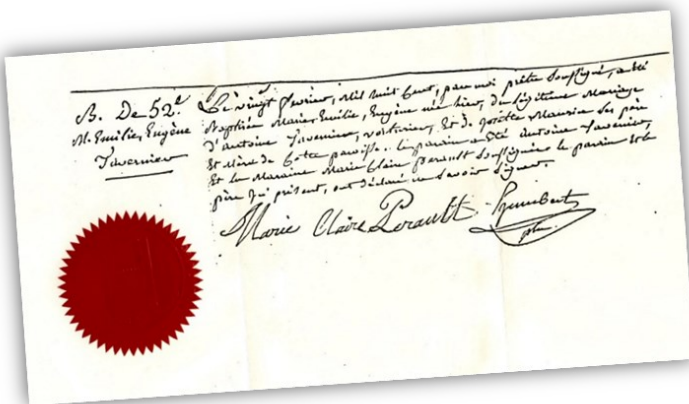 B. De 52.e
M. Emilie, Eugène
Tavernier
Le vingt fevrier, mil huit Cent, par moi prêtre Soussigné, a été
Baptisée Marie, Emilie, Eugène née hier, du légitime Mariage
d'antoine Tavernier, voiturier, Et de Josette Maurice Ses père
Et Mère de Cette paroisse. le parrain a été antoine Tavernier,
Et la Marraine Marie Claire perault Soussignée le parrain Et le
père ici présent, ont déclaré ne Savoir Signer.
Marie Claire Perault
ptre